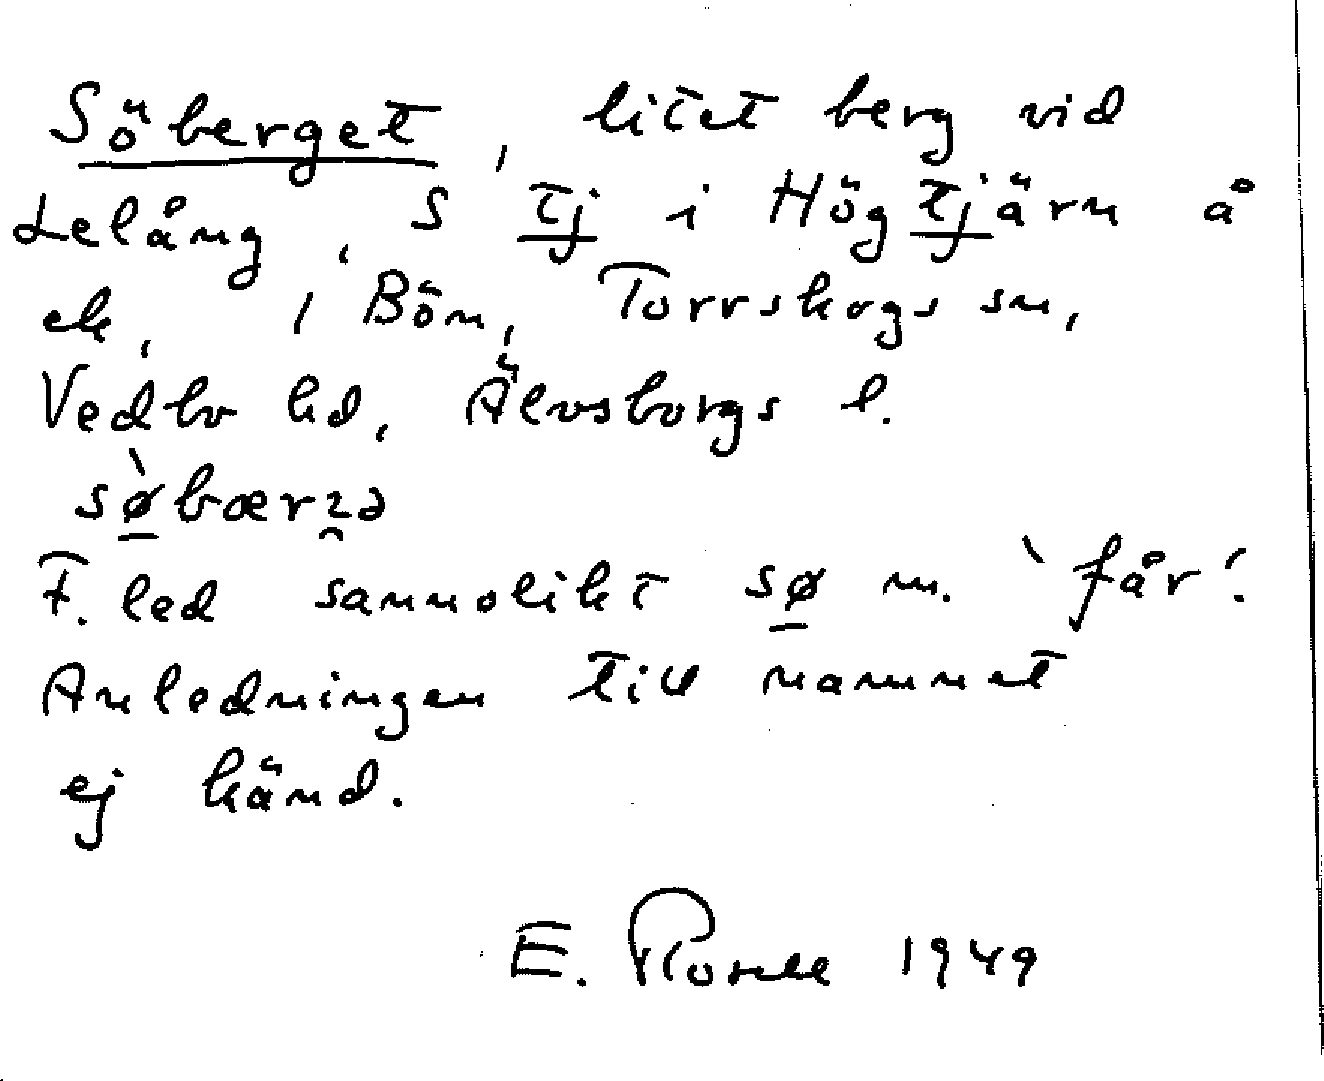 Söberget, litet berg vid
Lelång, S tj i Högtjärn å
ek, i Bön, Torrskogs sn,
Vedbo hd, Älvsborgs l.
sø̀bærʒə
F. led sannolikt sø n. `får´.
Anledningen till namnet
ej känd.
E. 1949